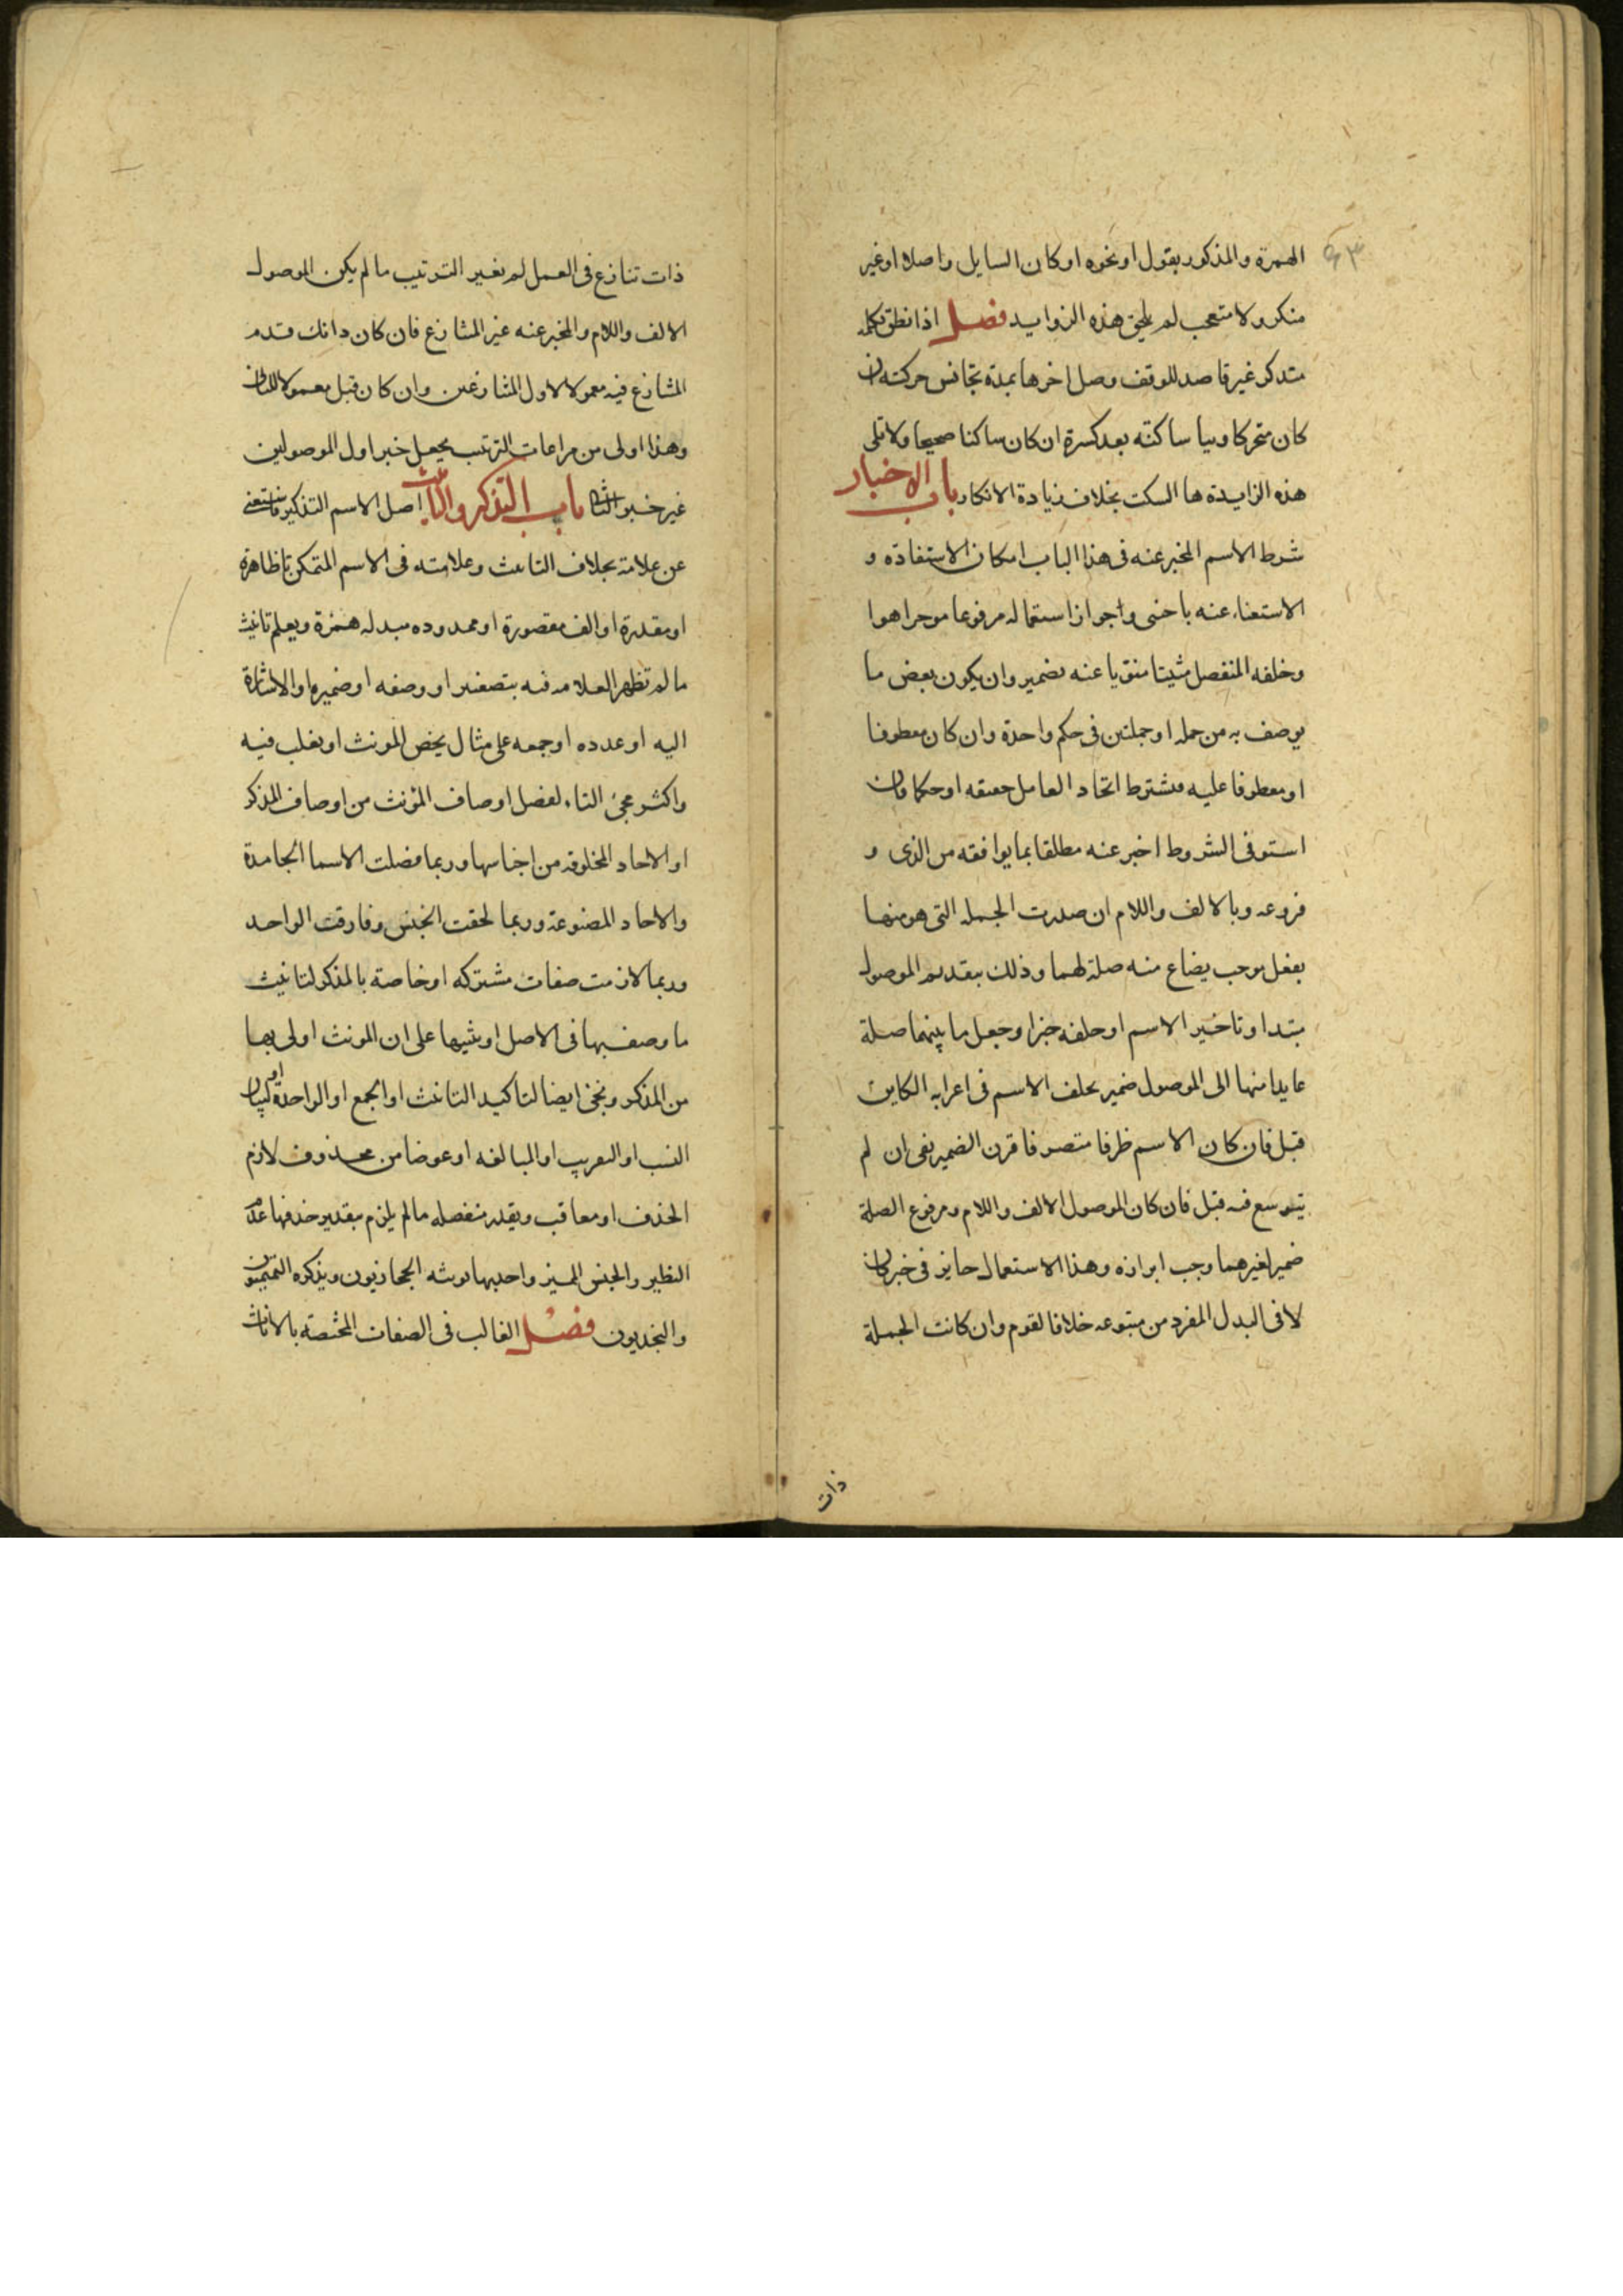 الهمزة والمذكور بقول او نحوه او كان السايل واصلا او غير
منكر ولا متعجب لم يلحق هذه الزوايد فصل اذا نطق بكلمة
متذكر غير قاصد للوقف وصل اخرها بمدة تجانس حركته ان
كان متحركا وبيا ساكنة بعد كسرة ان كان ساكنا صحيحا ولا تلى
هذه الزايدة ها السكت بخلاف زيادة الانكار باب الاخبار
شرط الاسم المخبر عنه فى هذا الباب امكان الاستفادة و
الاستغناء عنه باجنبى وجواز استعماله مرفوعا موخرا هوا
وخلفه المنفصل مثبتا منويا عنه بضمير وان يكون بعض ما
يوصف به من جمله او جملتين فى حكم واحدة وان كان معطوفا
او معطوفا عليه فيشترط اتحاد العامل حقيقه او حكما فان
استوفى الشروط اخبر عنه مطلقا بما يوافقه من الذى و
فروعه وبالالف واللام ان صدرت الجمله التى هو منها
بفعل موجب يصاع منه صلة لهما وذلك بتقديم الموصول
مبتدا وتاخير الاسم او خلفه خبرا وجعل ما بينهما صلة
عايدا منها الى الموصول ضمير يخلف الاسم فى اعرابه الكاين
قبل فان كان الاسم ظرفا متصرفا قرن الضمير بفى ان لم
يتوسع فيه قبل فان كان الموصول الالف واللام ومرفوع الصلة
ضمير لغيرهما وجب ابرازه وهذا الاستعمال جايز فى خبر كان
لا فى البدل المفرد من متبوعه خلافا لقوم وان كانت الجملة
ذات
ذات تنازع فى العمل لم يغير الترتيب ما لم يكن الموصول
الالف واللام والمخبر عنه غير المتنازع فان كان ذانك قدم
المتنازع فيه معمولا لاول المتنازعين وان كان قبل معمولا للثانى
وهذا اولى من مراعات الترتيب بجعل خبر اول الموصولين
غير خبر الثانى باب التذكير والتانيث اصل الاسم التذكير فاستغنى
عن علامة بخلاف التانيث وعلامته فى الاسم المتمكن تا ظاهرة
او مقدرة او الف مقصورة او ممدوده مبدله همزة ويعلم تانيث
ما لم تظهر العلامه فيه بتصغير او وصفه او ضميره او الاشارة
اليه او عدده او جمعه على مثال يخص المونث او يغلب فيه
واكثر مجئ التاء لفصل اوصاف المؤنث من اوصاف المذكر
او الاحاد المخلوقه من اجناسها وربما فصلت الاسما الجامدة
والاحاد المصنوعة وربما لحقت الجنس وفارقت الواحد
وربما لازمت صفات مشتركه او خاصة بالمذكر لتانيث
ما وصف بها فى الاصل او تنبيها على ان المونث اولى بها
من المذكر وتجئ ايضا لتاكيد التانيث او الجمع او الواحدة او لبيان
النسب او التعريب او المبالغه او عوضا من محذوف لازم
الحذف او معاقب ويقدر منفصله ما لم يلزم بتقدير حذفها عدم
النظير والجنس المميز واحدبها يونثه الحجازيون ويذكره التميميون
والنجديون فصل الغالب فى الصفات المختصة بالاناث